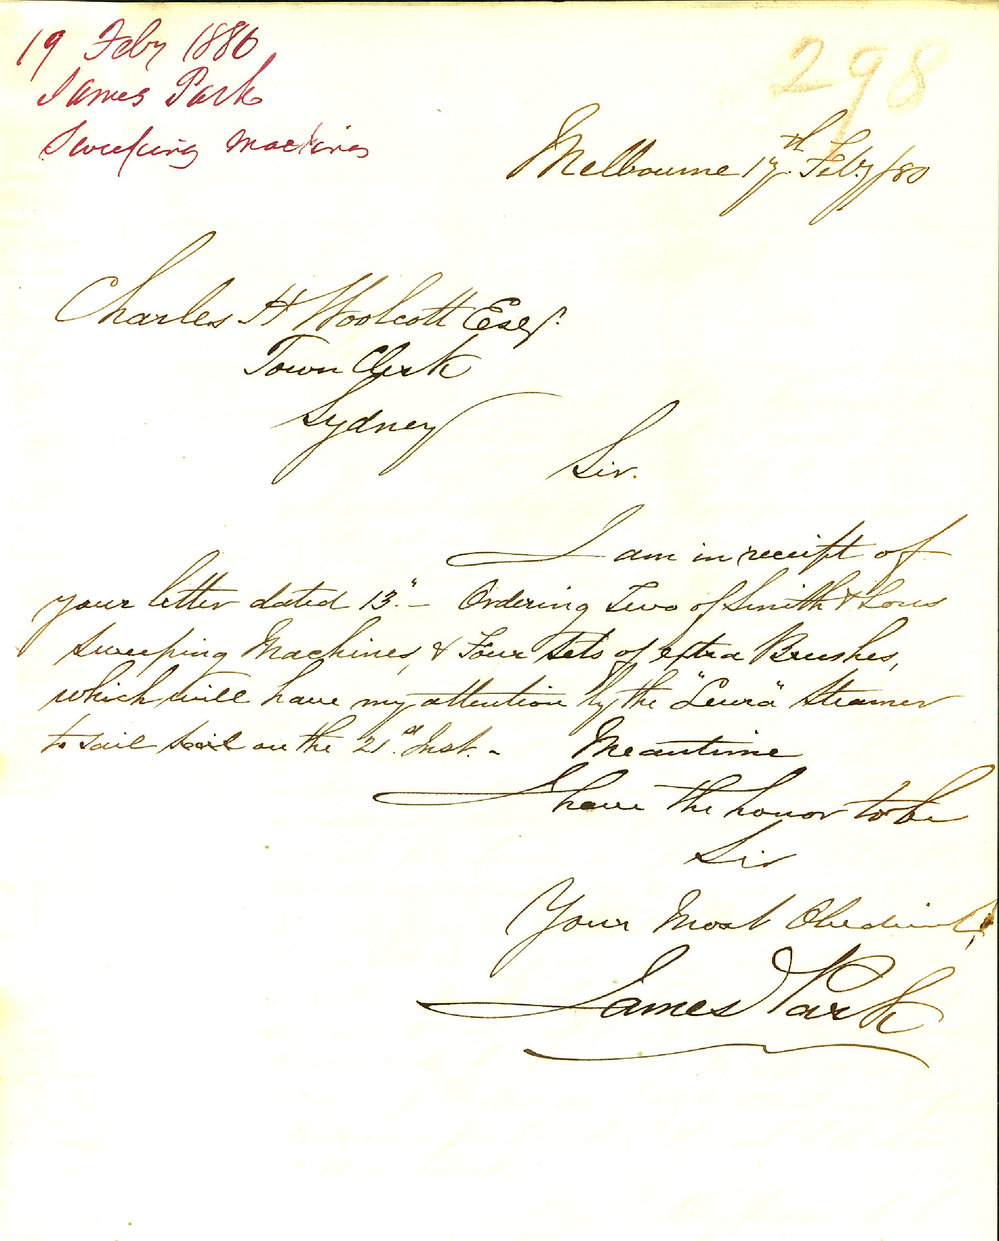 19 Feby 1880
James Park
Sweeping Machines
298
Melbourne 17th Feby /80
Charles H Woolcott Esqr.
Town Clerk
Sydney
Sir.
I am in receipt of
your letter dated 13." – Ordering Two of Smith & Sons
Sweeping Machines, & Four Sets of extra Brushes,
which will have my attention by the "Leura" Steamer
to sail sail on the 21st. Inst. – Meantime
I have the honor to be
Sir
Your Most Obedient,
James Park